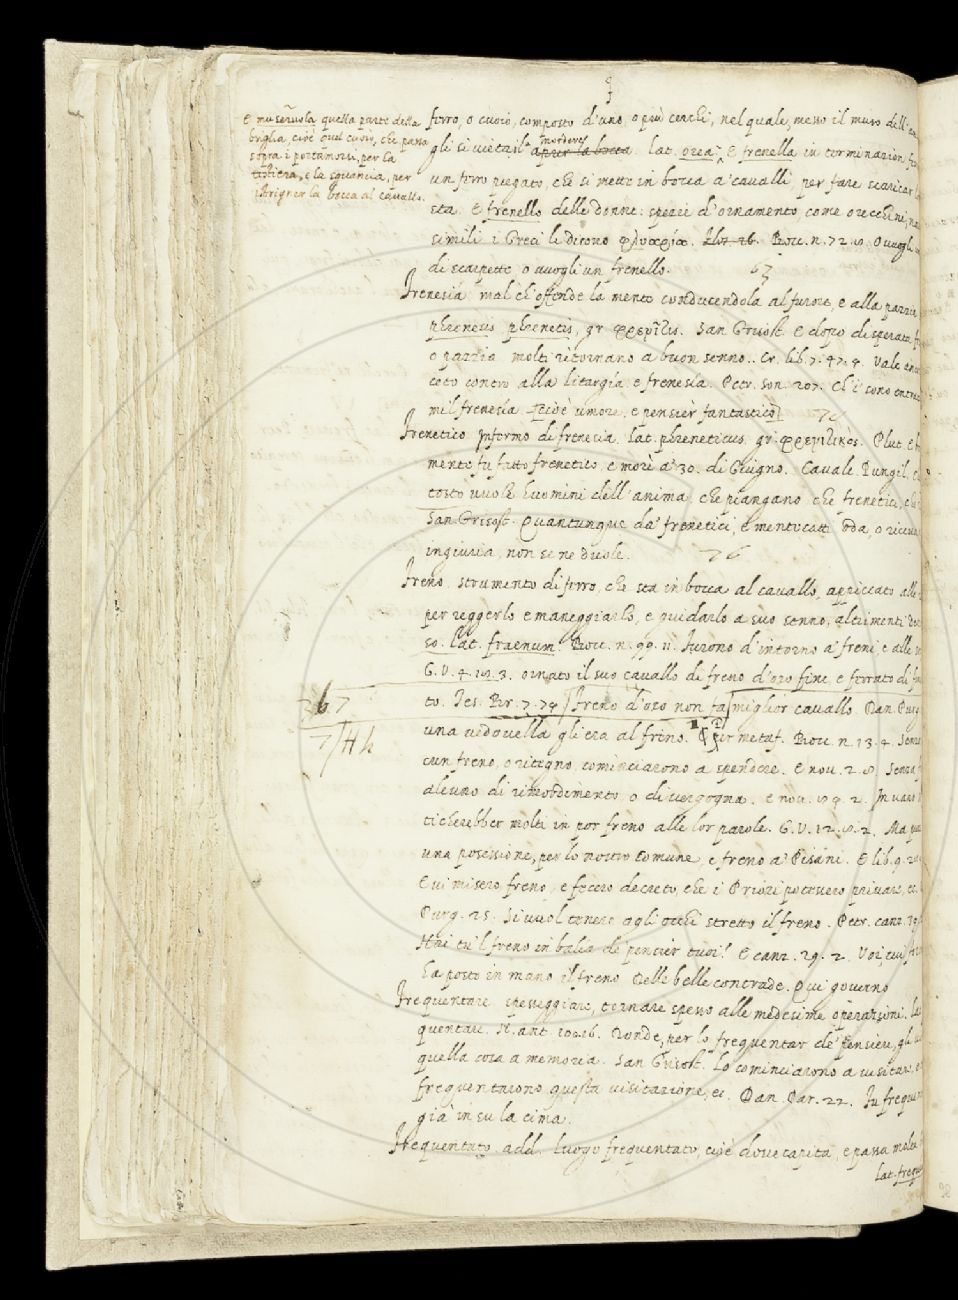 f
E museruola quella parte della
briglia, cioè quel cuoio, che passa
sopra i portamorsi, per la
testiera, e la sguancia, per
istrigner la bocca al cavallo.
ferro, o cuoio, composto d'uno, o più cerchi, nel quale, messo il muso dell'
mordere
gli si vieta il aprir la bocca. lat. orea. E frenella in terminazion
un ferro piegato, che si mette in bocca a' cavalli, per fare scaricar
sta. E frenello delle donne: spezie d'ornamento, come orecchini,
simili i Greci li dicono Bocc. n. 72. O vuogli
di scarpette, o vuogli un frenello.
67
Frenesia mal ch'offende la mente conducendola al furore, e alla pazzia
phrenesis phrenetis, gr. San Grisost. E dopo disperata
o pazzia molti ritornano a buon senno. Cr. lib. 7. 47. 4. Vale
coto contro alla litargia e frenesia. Petr. Son. 207. Ch'i' sono
mil frenesia. cioè umore, e pensier fantastico
76
Frenetico Infermo di frenesia. lat. phreneticus. gr. φρενιτικὸς. Plut.
mente fu fatto frenetico, e morì a' 30. di Giugno. Cavalc. Pungil.
tosto vuole huomini dell'anima, che piangano che frenetici,
San Grisost. Quantunque da' frenetici, e mentecatti oda, o riceva
ingiuria, non se ne duole.
76
Freno. strumento di ferro, che sta in bocca al cavallo, appiccato alle
per reggerlo e maneggiarlo, e guidarlo a suo senno, altrimenti
so. lat. fraenum. Bocc. n. 99. 11. Furono d'intorno a' freni, e alle
G. V. 4. 3. ornato il suo cavallo di freno d'oro fine, e ferrato di
to. Tes. Br. 7. 74 Freno d'oro non fa miglior cavallo. Dan. Purg.
267
7/Hh
una vedovella gli era al freno. Per metaf. Bocc. n. 13. 4. Senza
cun freno, o ritegno, cominciarono a spendere. E nov. 2. 8. Senza
alcuno di rimordimento, o di vergogna. e nov. 2. In vano
ticherebber molti in por freno alle lor parole. G. V. 12. 2. Ma
una posessione, per lo nostro Comune, e freno a' Pisani. E lib. 9.
E vi misero freno, e fecero decreto, che i Priori potessero privare, ec.
Purg. 25. Si vuol tenere agli occhi stretto il freno. Petr. canz.
Hai tu 'l freno in balia de' pensier tuoi! E canz. 29. 2. Voi, cui
ha posto in mano il freno Delle belle contrade. Qui governo
Frequentare spesseggiare, tornare spesso alle medesime operazioni.
quentare. N. ant. 100.16. Ronde, per lo frequentar de' pensieri, gli
quella cosa a memoria. San Grisost. Lo cominciarono a visitare,
frequentarono questa visitazione, ec. Dan. Par. 22. Fu frequen
già in su la cima.
Frequentato. add. Luogo frequentato, cioè dove capita, e passa molta
lat. frequ